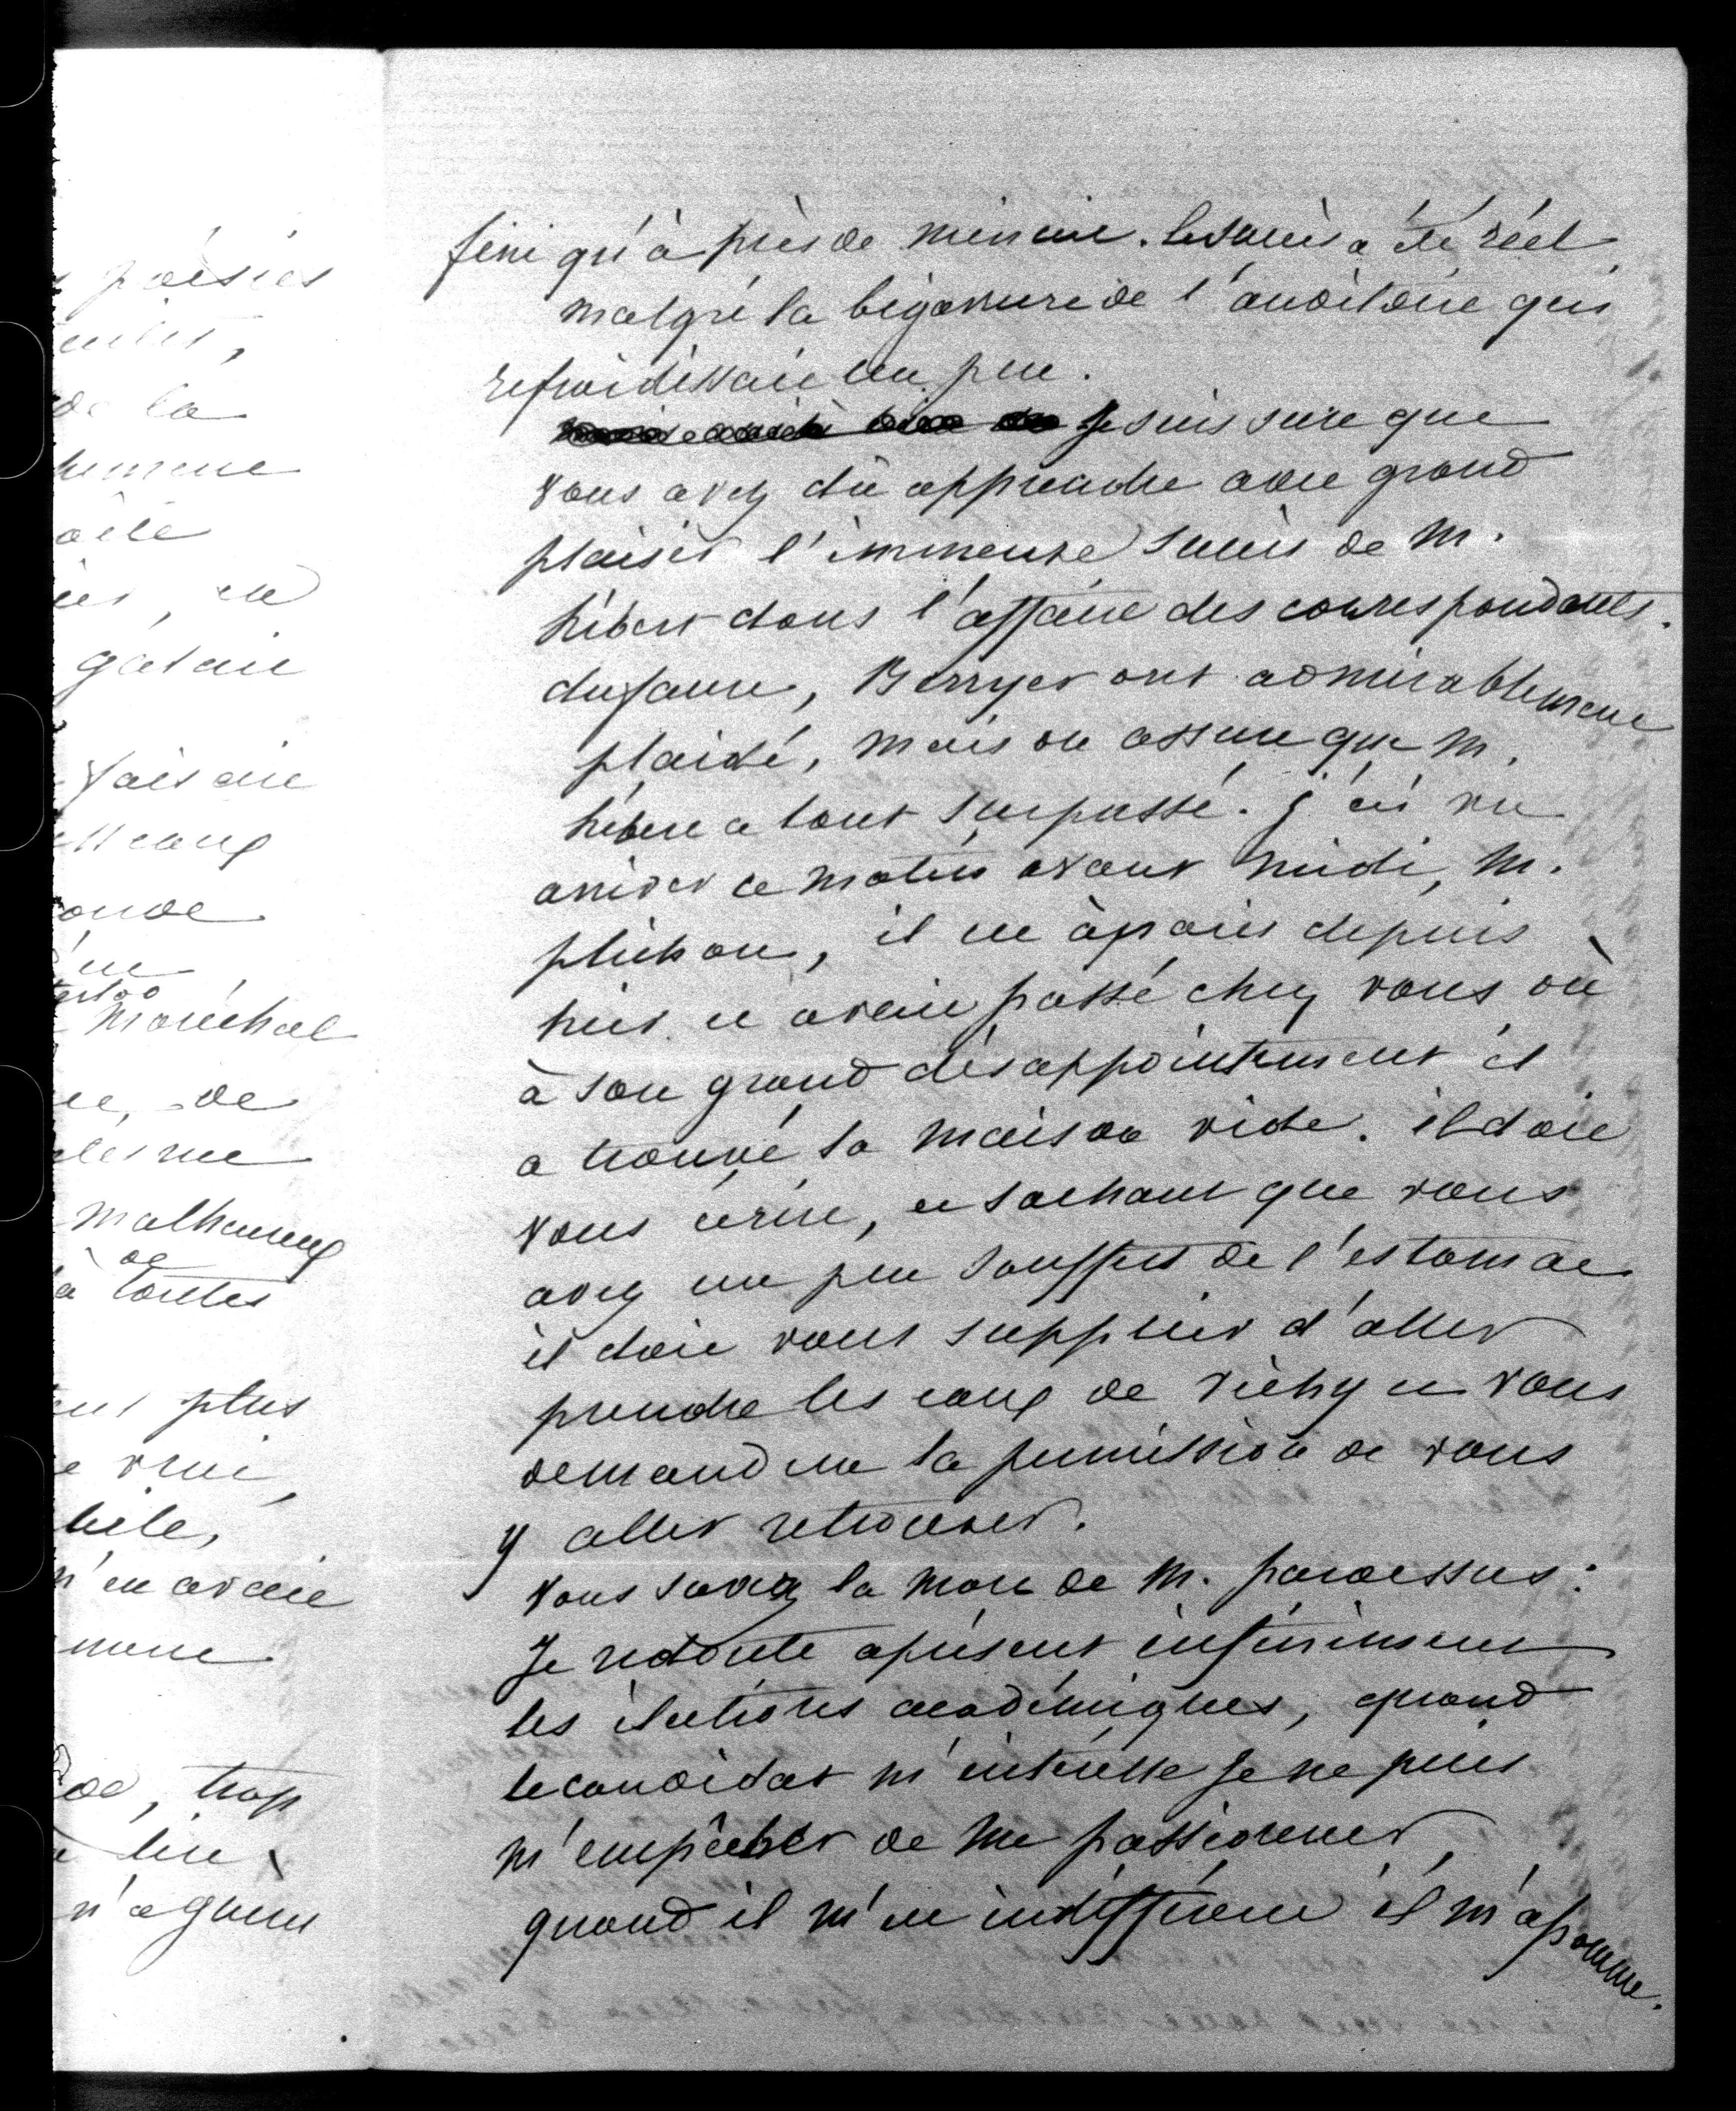 poésies
de la
gataie
faisaie
maréchal
de
malheureux
de
à toutes
plus
vrai,
n'en avaie
de, trop
lui
n'a guère
fini qu'à près de minuie. le succès a été réel
malgré la bigarrure de l'auditoire qui
refroidissaie un peu.
Je suis sure que
vous avez dû apprendre avec grand
plaisir l'immense succès de M.
hébert dans l'affaire des correspondants.
dufaure, Berryer ont admirablemene
plaidé, mais on assure que M.
hébere a tout surpassé. j'ai vu
arriver ce matin avant midi, M.
plichon, il ee à paris depuis
hier ee avaie passé chez vous où
à son grand désappointement il
a trouvé la maison vide. il doie
vous écrire, ee sachant que vous
avez un peu souffert de l'estomac
il doie vous supplier d'aller
prendre les eaux de vichy ee vous
demander la permission de vous
y aller retrouver.
vous savez la more de M. pardessus:
Je redoute apresent infinimene
les élections académiques, quand
le candidat m'intéresse je ne puis
m'empêcher de me passionner,
quand il m'ee indifférene il m'assomme.